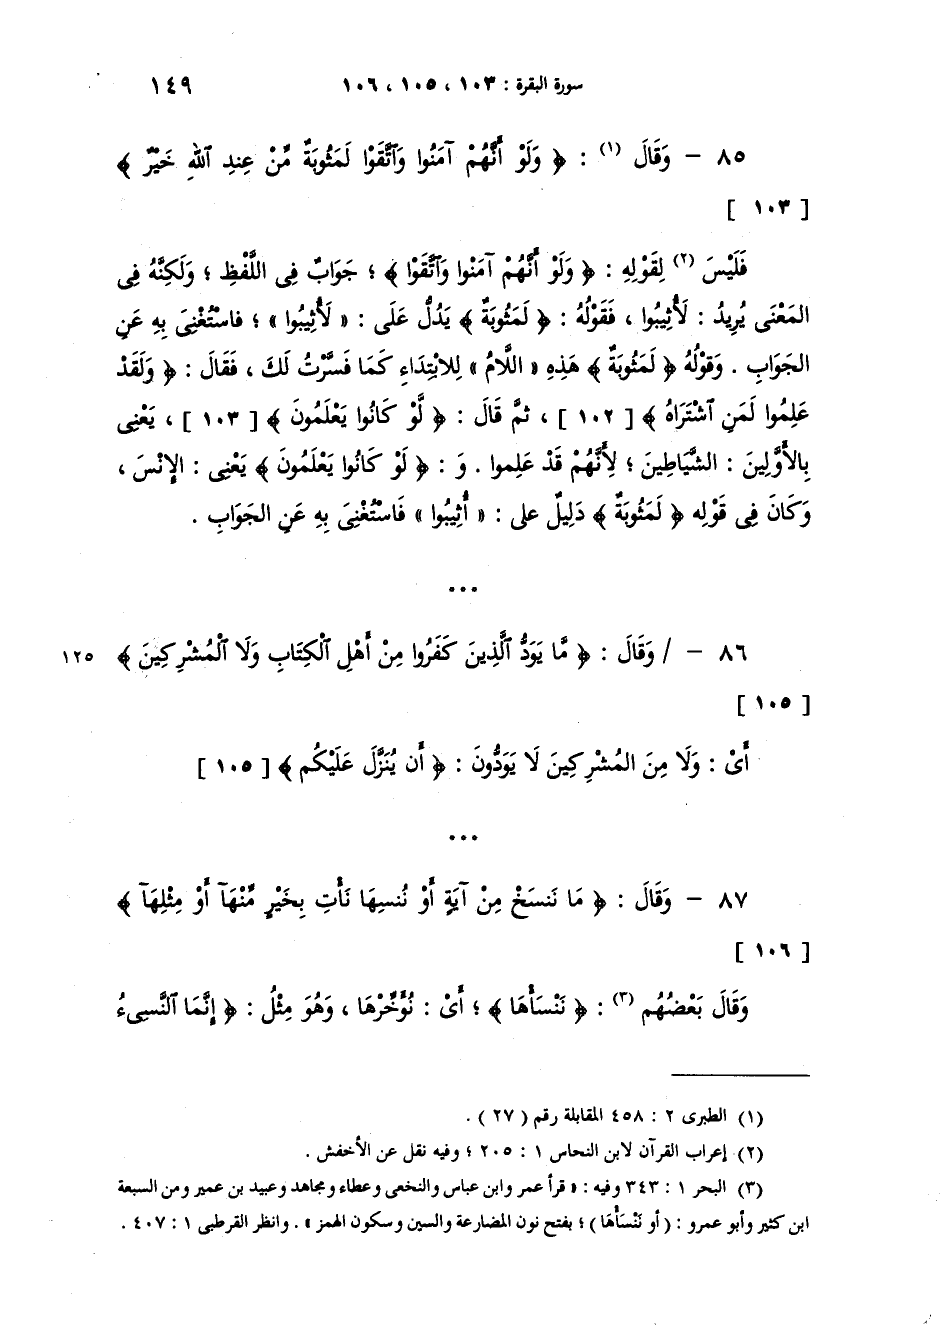 سورة البقرة : ١٠٣ ، ١٠٥ ، ١٠٦ ١٤٩
٨٥ – وَقَالَ (١) : ﴿ وَلَوْ أَنَّهُمْ آمَنُوا وَٱتَّقَوْا لَمَثُوبَةٌ مِّنْ عِندِ ٱللَّهِ خَيْرٌ ﴾
[ ١٠٣ ]
فَلَيْسَ (٢) لِقَوْلِهِ : ﴿ وَلَوْ أَنَّهُمْ آمَنُوا وَٱتَّقَوْا ﴾ ؛ جَوَابٌ فِى اللَّفْظِ ؛ وَلَكِنَّهُ فِى
المَعْنَى يُرِيدُ : لَأُثِيبُوا ، فَقَوْلُهُ : ﴿ لَمَثُوبَةٌ ﴾ يَدُلُّ عَلَى : « لَأُثِيبُوا » ؛ فاسْتُغْنِىَ بِهِ عَنِ
الجَوَابِ . وَقوْلُهُ ﴿ لَمَثُوبَةٌ ﴾ هَذِهِ « اللَّامُ » لِلابْتِدَاءِ كَمَا فَسَّرْتُ لَكَ ، فَقَالَ : ﴿ وَلَقَدْ
عَلِمُوا لَمَنِ ٱشْتَرَاهُ ﴾ [ ١٠٢ ] ، ثمَّ قَالَ : ﴿ لَّوْ كَانُوا يَعْلَمُونَ ﴾ [ ١٠٣ ] ، يَعْنِى
بِالأَوَّلِينَ : الشَّيَاطِينَ ؛ لِأَنَّهُمْ قَدْ عَلِموا . وَ : ﴿ لَوْ كَانُوا يَعْلَمُونَ ﴾ يَعْنِى : الإِنْسَ ،
وَكَانَ فِى قَوْلِه ﴿ لَمَثُوبَةٌ ﴾ دَلِيلٌ على : « أُثِيبُوا » فَاسْتُغْنِىَ بِهِ عَنِ الجَوَابِ .
•••
٨٦ – / وَقَالَ : ﴿ مَّا يَوَدُّ ٱلَّذِينَ كَفَرُوا مِنْ أَهْلِ ٱلْكِتَابِ وَلَا ٱلْمُشْرِكِينَ ﴾ ١٢٥
[ ١٠٥ ]
أَىْ : وَلَا مِنَ المُشْرِكِينَ لَا يَوَدُّونَ : ﴿ أَن يُنَزَّلَ عَلَيْكُم ﴾ [ ١٠٥ ]
•••
٨٧ – وَقَالَ : ﴿ مَا نَنسَخْ مِنْ آيَةٍ أَوْ نُنسِهَا نَأْتِ بِخَيْرٍ مِّنْهَآ أَوْ مِثْلِهَآ ﴾
[ ١٠٦ ]
وَقَالَ بَعْضُهُم (٣) : ﴿ نَنْسَأْهَا ﴾ ؛ أَىْ : نُؤَخِّرْهَا ، وَهُوَ مِثْلُ : ﴿ إِنَّمَا ٱلنَّسِىءُ
(١) الطبرى ٢ : ٤٥٨ المقابلة رقم ( ٢٧ ) .
(٢) إعراب القرآن لابن النحاس ١ : ٢٠٥ ؛ وفيه نقل عن الأخفش .
(٣) البحر ١ : ٣٤٣ وفيه : « قرأ عمر وابن عباس والنخعى وعطاء ومجاهد وعبيد بن عمير ومن السبعة
ابن كثير وأبو عمرو : ( أو نَنْسَأْهَا ) ؛ بفتح نون المضارعة والسين وسكون الهمز » . وانظر القرطبى ١ : ٤٠٧ .